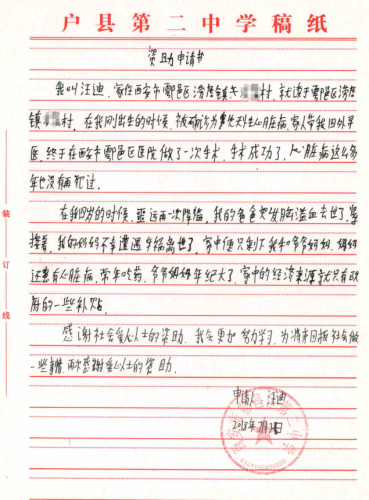 户县第二中学稿纸
资助申请书
我叫汪迪，家住西安市鄠邑区涝店镇 村，就读于鄠邑区涝店
镇 村，在我刚出生的时候，被确诊为 先天性心脏病，家人带我四处求
医，终于在西安市鄠邑区医院做了一次手术，手术成功了，心脏病这么多
年也没有再犯过。
在我四岁的时候，噩运再一次降临，我的爸爸突发脑溢血去世了，紧
接着，我的妈妈不幸遭遇车祸离世了，家中便只剩下我和爷爷奶奶，奶奶
还患有心脏病，常年吃药，爷爷奶奶年纪大了，家中的经济来源就只有政
府的一些补贴。
感谢社会爱心人士的资助，我会更加努力学习，为将来回报社会做
一些事情，再次感谢爱心人士的资助。
申请人：汪迪
2018年7月 日
装
订
线